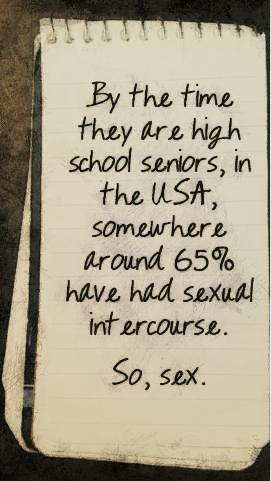 By the time
they are high
school seniors, in
the USA,
somewhere
around 65%
have had sexual
intercourse.
So, sex.